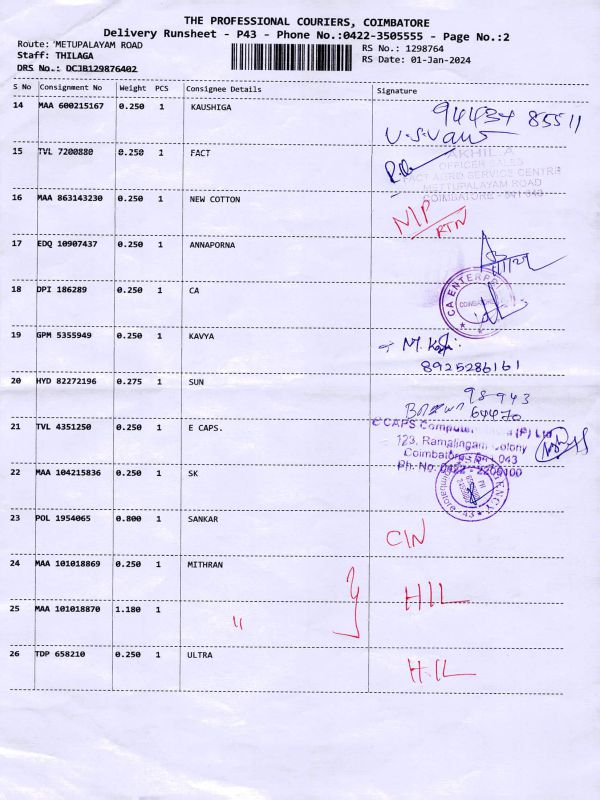 THE PROFESSIONAL COURIERS, COIMBATORE
Delivery Runsheet - P43 - Phone No.:0422-3505555 - Page No.:2
Route: 'METUPALAYAM ROAD
Staff: THILAGA
DRS No.: DCJB129876402
RS No.: 1298764
RS Date: 01-Jan-2024
S No Consignment No Weight PCS Consignee Details Signature
14 MAA 600215167 0.250 1 KAUSHIGA 94434 85511
15 TVL 7200880 0.250 1 FACT
AKHIL A
OFFICER SALES
FACT AGRO SERVICE CENTRE
METTUPALAYAM ROAD
COIMBATORE - 641 043
16 MAA 863143230 0.250 1 NEW COTTON N/P
RTN
17 EDQ 10907437 0.250 1 ANNAPORNA
18 DPI 186289 0.250 1 CA
CA ENTERPRI
COIMBATORE
19 GPM 5355949 0.250 1 KAVYA
8925286161
20 HYD 82272196 0.275 1 SUN 98943
64470
21 TVL 4351250 0.250 1 E CAPS.
E CAPS Computer (P) Ltd
123, Ramalingam Colony
Coimbatore - 641 043
Ph. No: 0422 - 2200100
22 MAA 104215836 0.250 1 SK
23 POL 1954065 0.800 1 SANKAR C/N
24 MAA 101018869 0.250 1 MITHRAN
25 MAA 101018870 1.180 1 " H/L
26 TDP 658210 0.250 1 ULTRA H/L